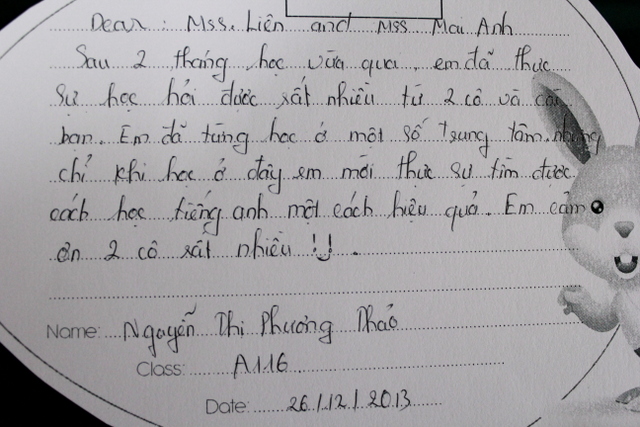 Dear : Mss. Liên and Mss Mai Anh
Sau 2 tháng học vừa qua, em đã thực
sự học hỏi được rất nhiều từ 2 cô và các
bạn. Em đã từng học ở một số trung tâm nhưng
chỉ khi học ở đây em mới thực sự tìm được
cách học tiếng anh một cách hiệu quả. Em cảm
ơn 2 cô rất nhiều !!
Name: Nguyễn Thị Phương Thảo
Class: A116
Date: 26/12/2013